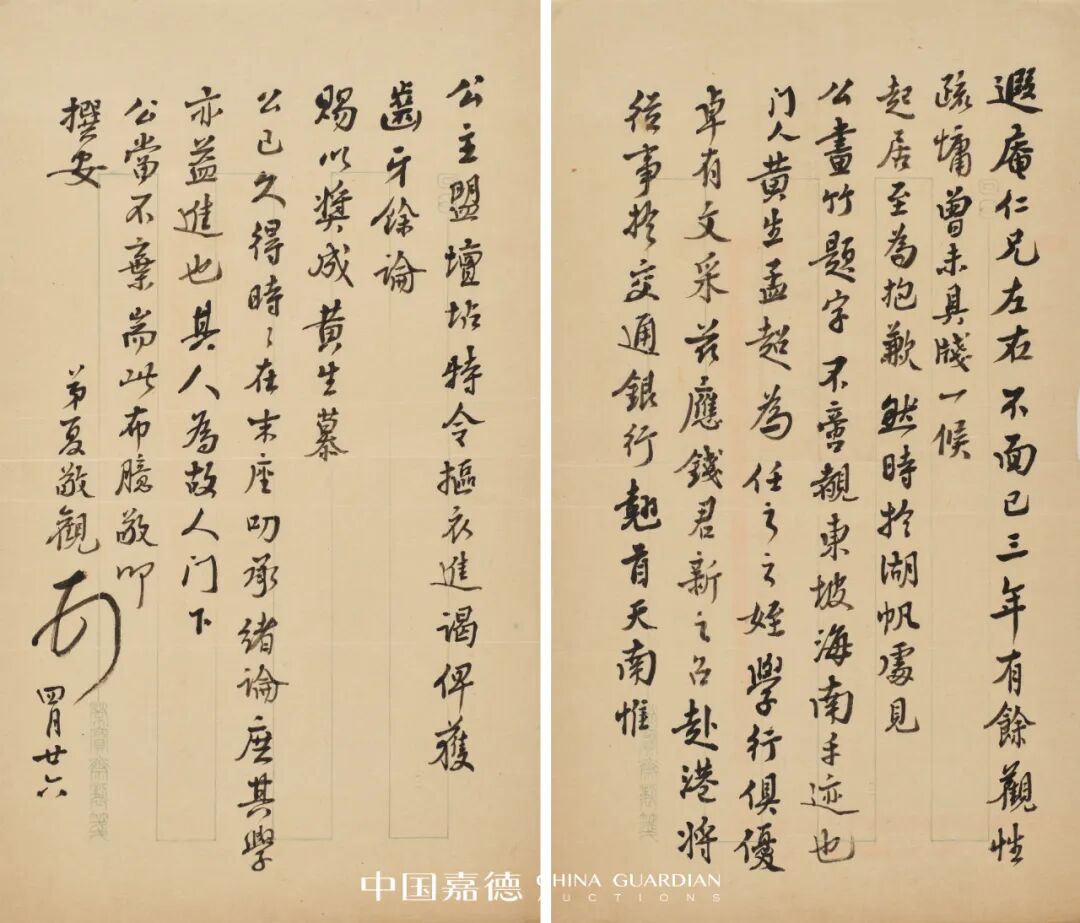 遐庵仁兄左右不面已三年有餘觀性
疏慵曾未具牋一候
起居至為抱歉然時於湖帆處見
公畫竹題字不啻覩東坡海南手迹也
门人黄生孟超為任之之姪學行俱優
卓有文采兹應錢君新之召赴港將
從事於交通銀行翹首天南惟
公主盟壇坫特令摳衣進謁俾獲
齒牙餘論
賜以獎成黄生慕
公已久得時〻在末座叨承緒論庶其學
亦益進也其人為故人门下
公當不棄耑此布臆敬叩
撰安
弟夏敬觀
四月廿六
榮寶齋製箋
中国嘉德
CHINA GUARDIAN
AUCTIONS